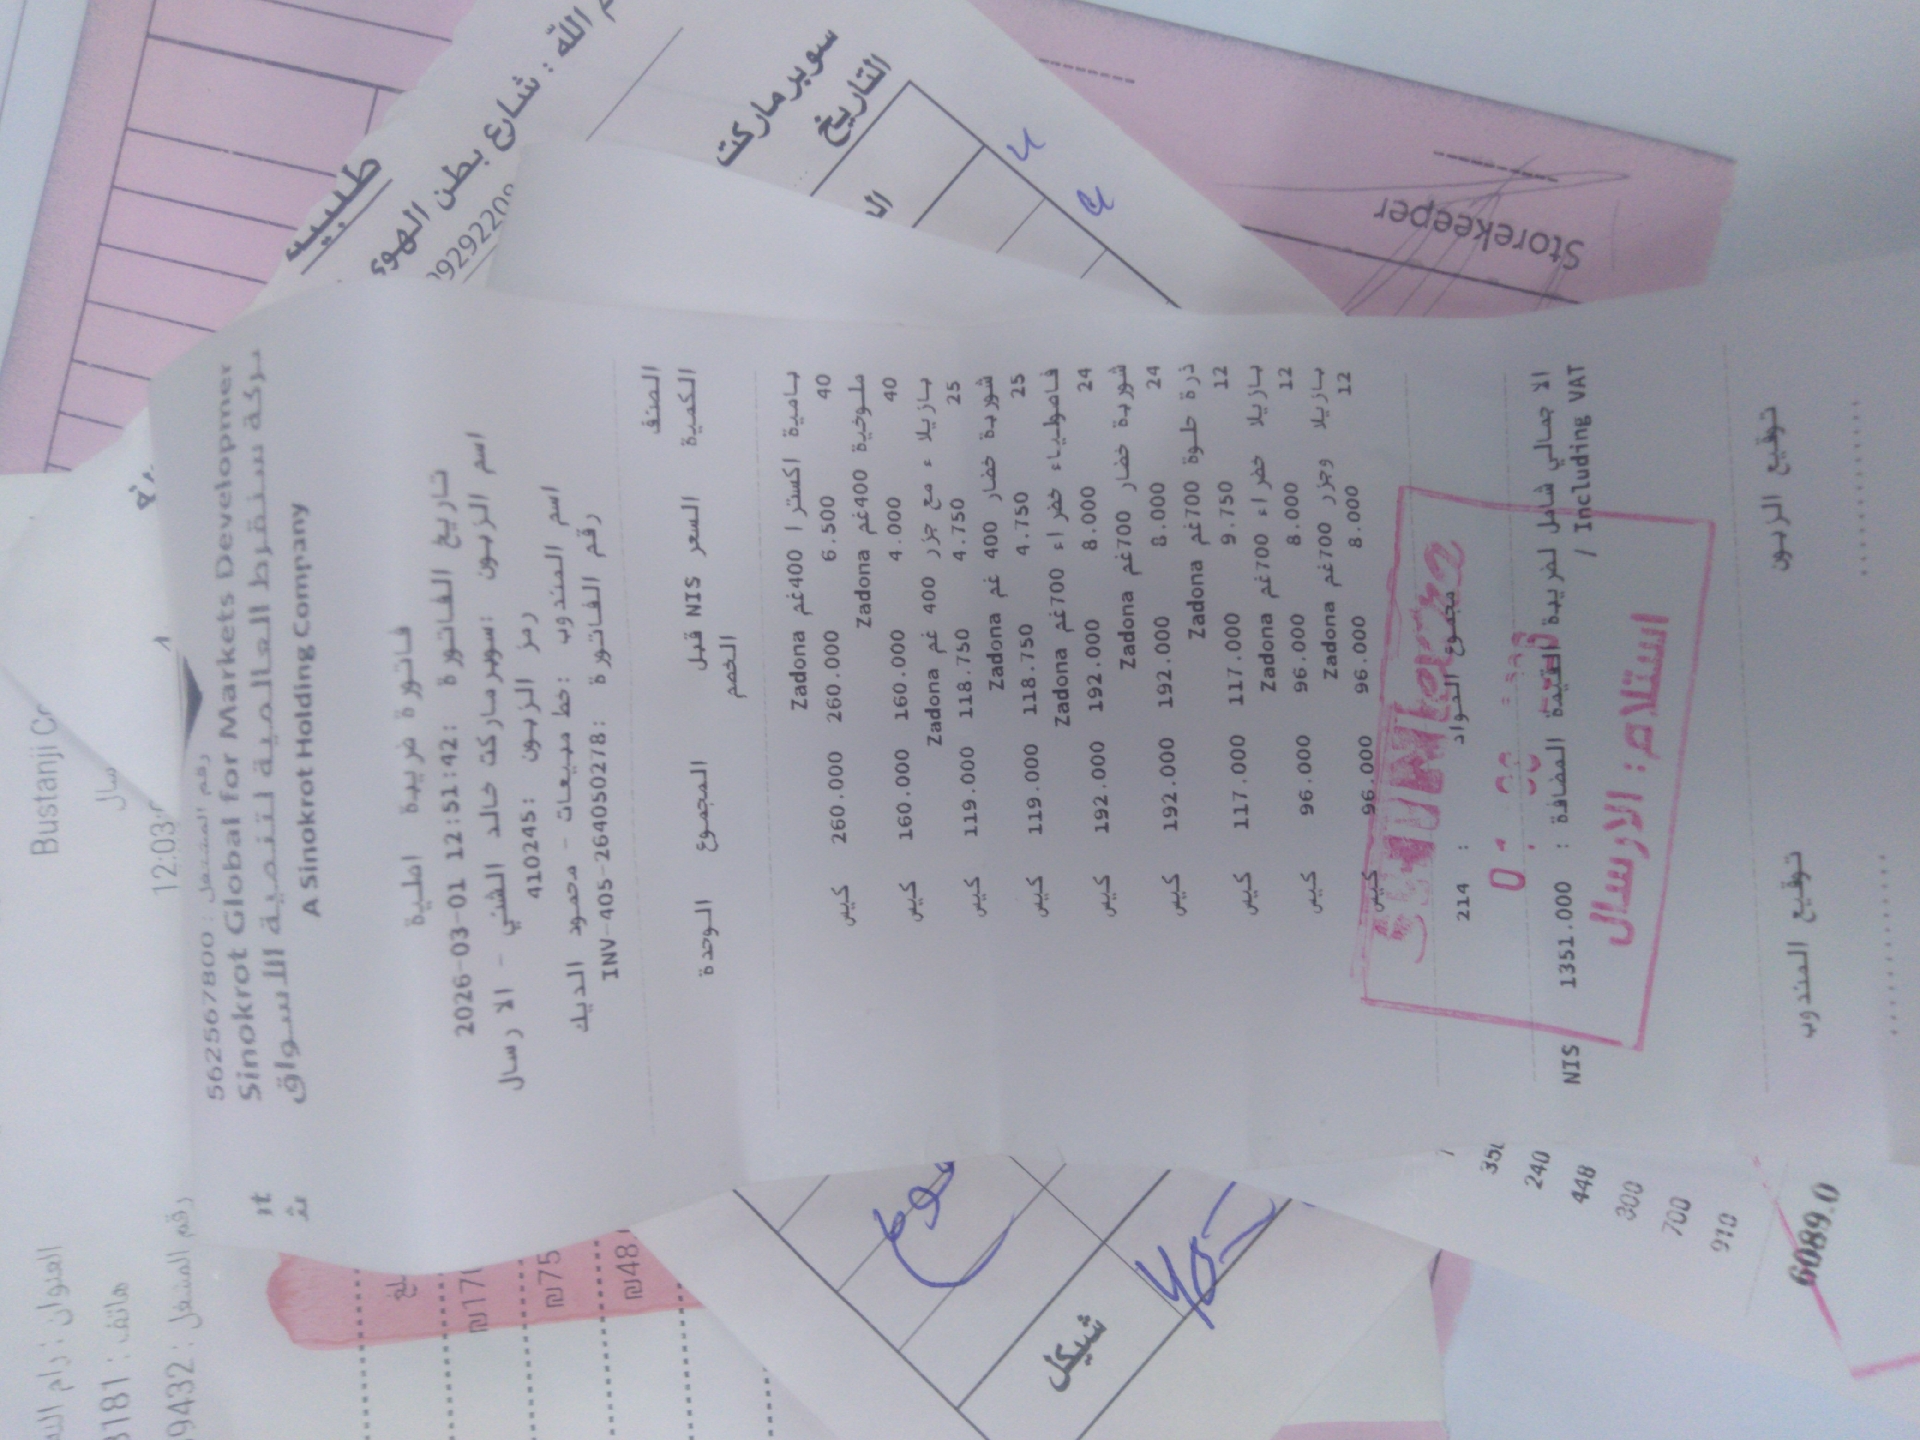 رقم المشتغل : 562567800
Sinokrot Global for Markets Developmer
شركة سنقرط العالمية لتنمية الاسواق
A Sinokrot Holding Company
فاتورة ضريبة اصلية
تاريخ الفاتورة :2026-03-01 12:51:42
اسم الزبون :سوبرماركت خالد الشني - الارسال
رمز الزبون :410245
اسم المندوب :خط مبيعات - محمود الديك
رقم الفاتورة :INV-405-264050278
الصنف
الكمية السعر NIS قبل الخصم المجموع الوحدة
بامية اكسترا 400غم Zadona
40 6.500 260.000 260.000 كيس
ملوخية 400غم Zadona
40 4.000 160.000 160.000 كيس
بازيلاء مع جزر 400 غم Zadona
25 4.750 118.750 119.000 كيس
شوربة خضار 400 غم Zadona
25 4.750 118.750 119.000 كيس
فاصولياء خضراء 700غم Zadona
24 8.000 192.000 192.000 كيس
شوربة خضار 700غم Zadona
24 8.000 192.000 192.000 كيس
ذرة حلوة 700غم Zadona
12 9.750 117.000 117.000 كيس
بازيلا خضراء 700غم Zadona
12 8.000 96.000 96.000 كيس
بازيلا وجزر 700غم Zadona
12 8.000 96.000 96.000 كيس
مجموع المواد : 214
الاجمالي شامل لضريبة القيمة المضافة : 1351.000 NIS
/ Including VAT
استلام: الارسال
توقيع الزبون
توقيع المندوب
Storekeeper
سوبرماركت
التاريخ
طلبية
شارع بطن الهوى
Bustanji
12:03
العنوان : رام
هاتف :
رقم المشتغل :
₪75
₪48
شيكل
240
448
300
700
910
6089.0